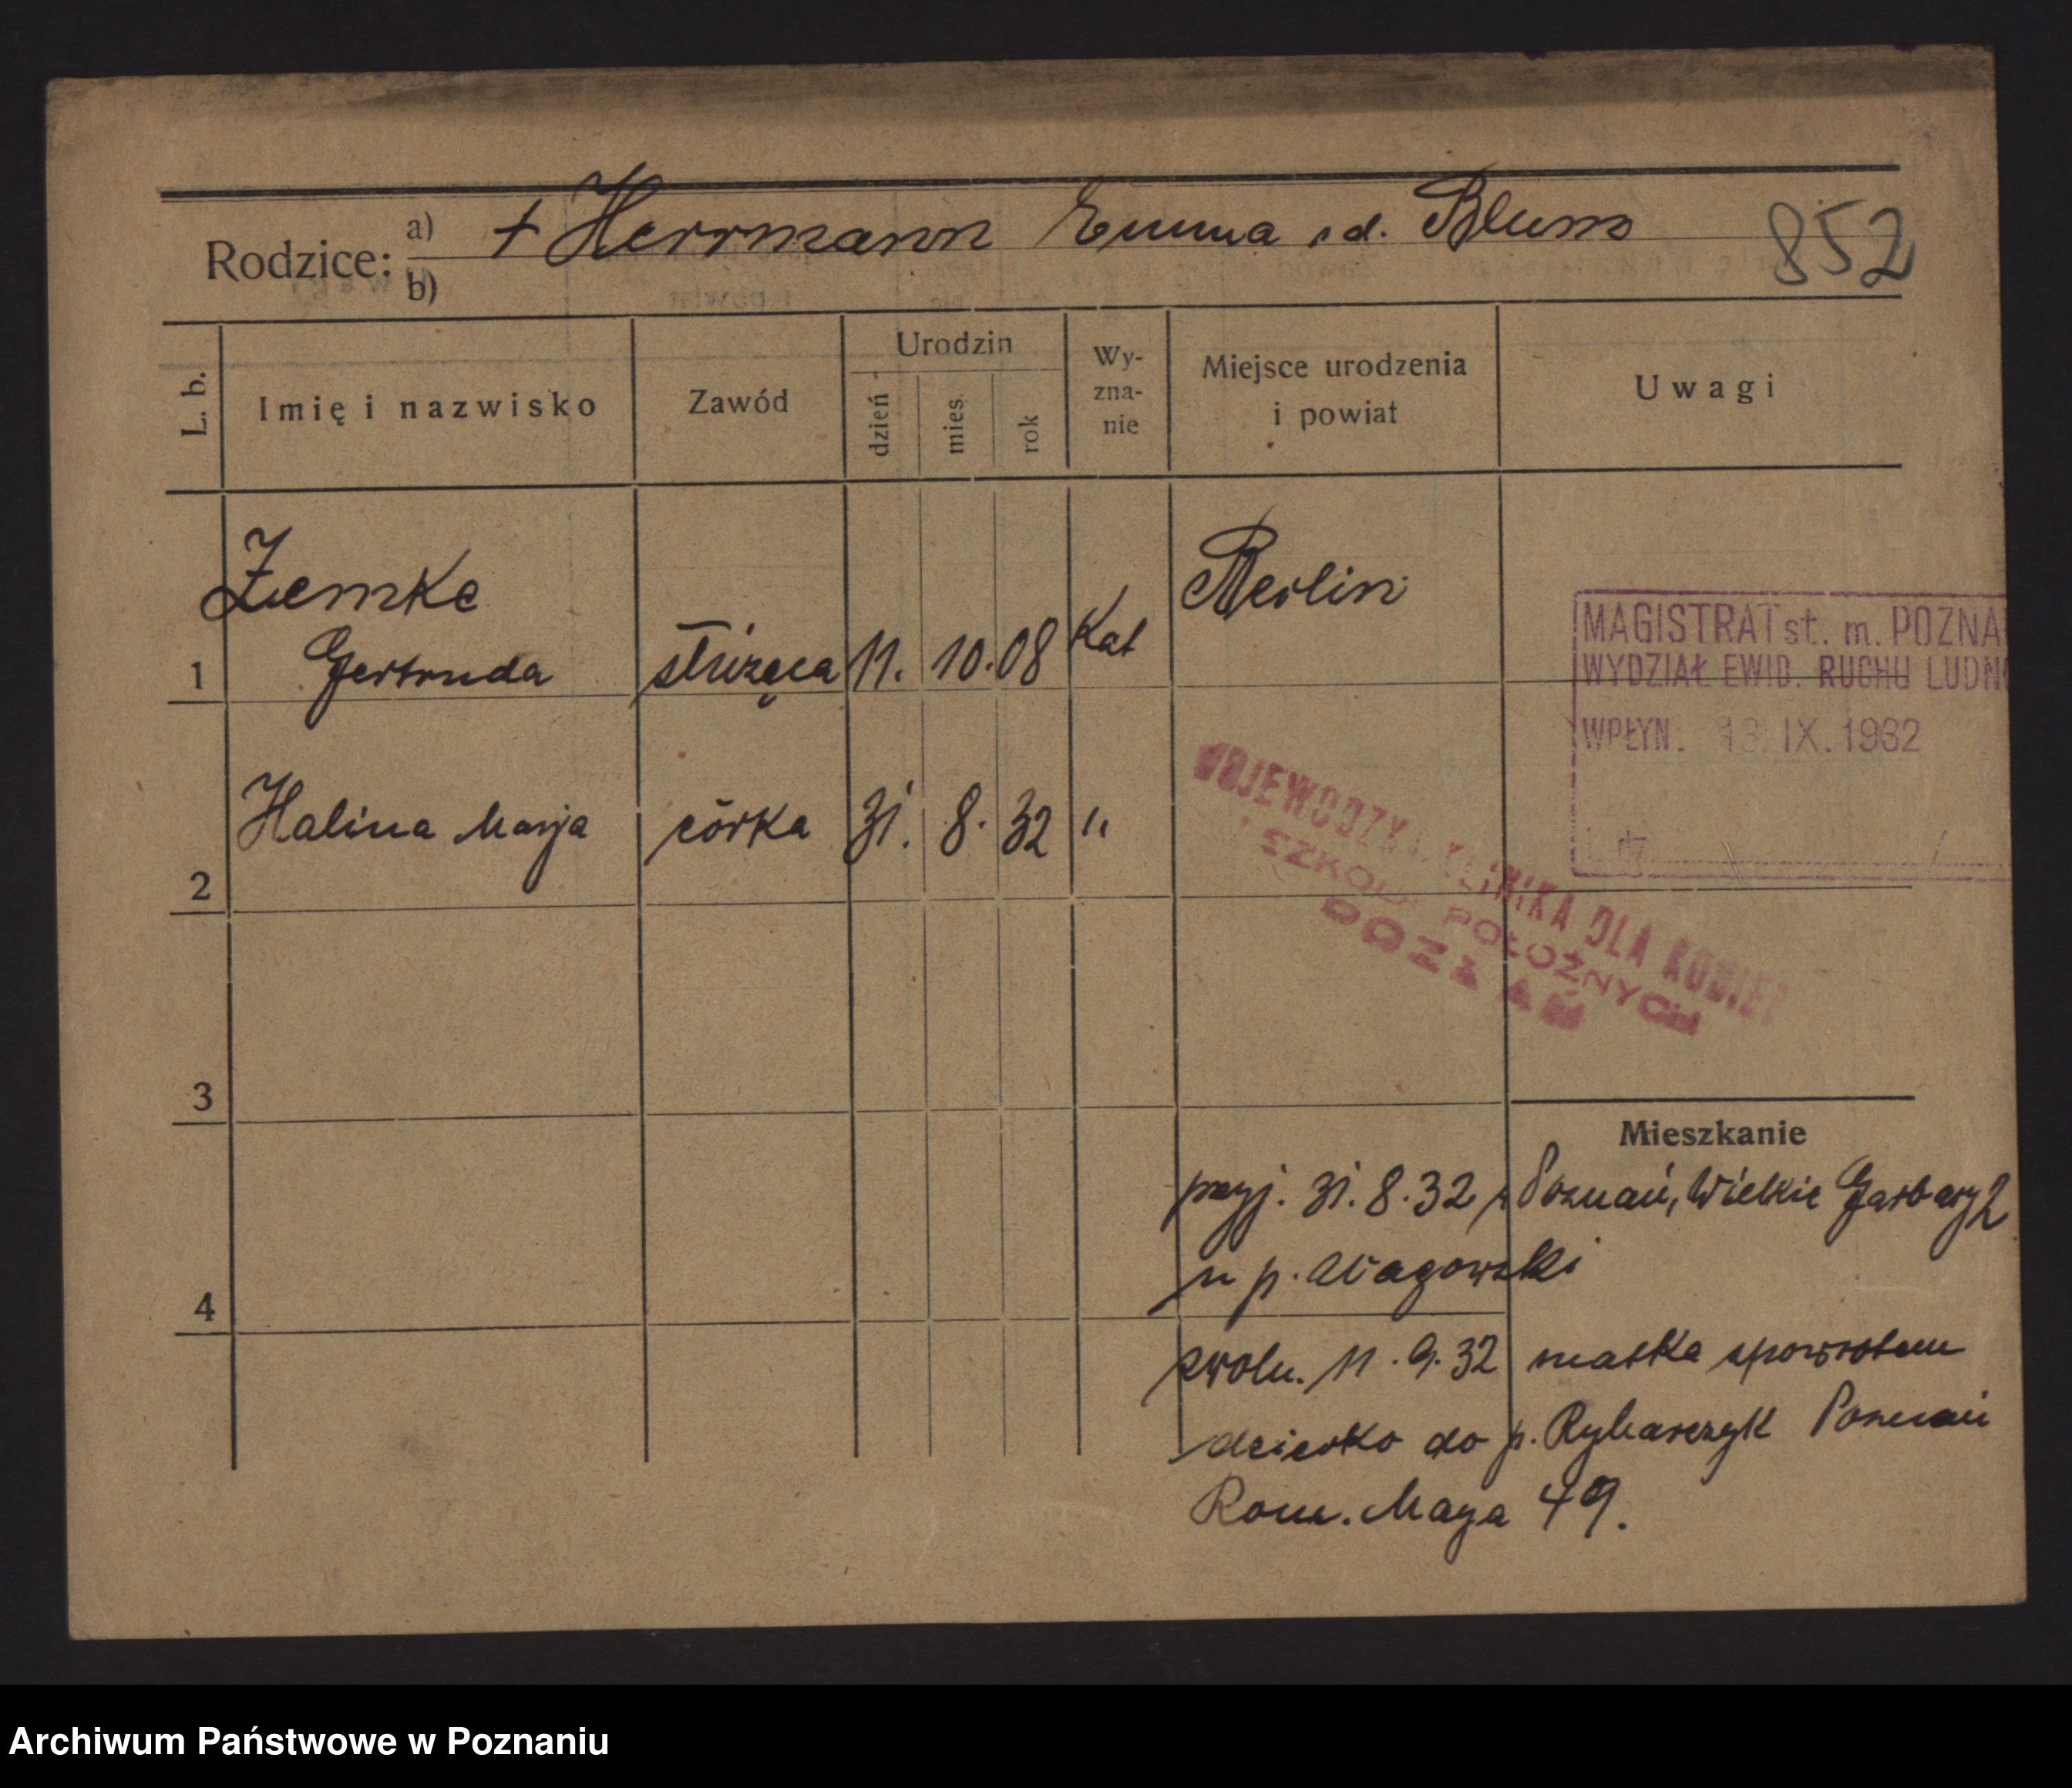 Rodzice:
a) + Herrmann Emma i d. Blum
852
b)
L. b.
Imię i nazwisko
Zawód
Urodzin
dzień
mies.
rok
Wy-
zna-
nie
Miejsce urodzenia
i powiat
Uwagi
Zemke
Gertruda
1
służąca
11. 10. 08
Kat
Berlin
MAGISTRAT st. m. POZNA
WYDZIAŁ EWID. RUCHU LUDN
WPŁYN. 13. IX. 1932
L. dz.
Halina Marja córka 31. 8. 32 "
2
WOJEWÓDZKA KLINIKA DLA KOBIET
I SZKOŁA POŁOŻNYCH
POZNAŃ
3
Mieszkanie
przyj. 31. 8. 32 z Poznań, Wielkie Garbary 2
u p.
4
zwoln. 11. 9. 32 matka spowrotem
dziecko do p. Rybarczyk Poznań
Rom. Maya 49.
Archiwum Państwowe w Poznaniu